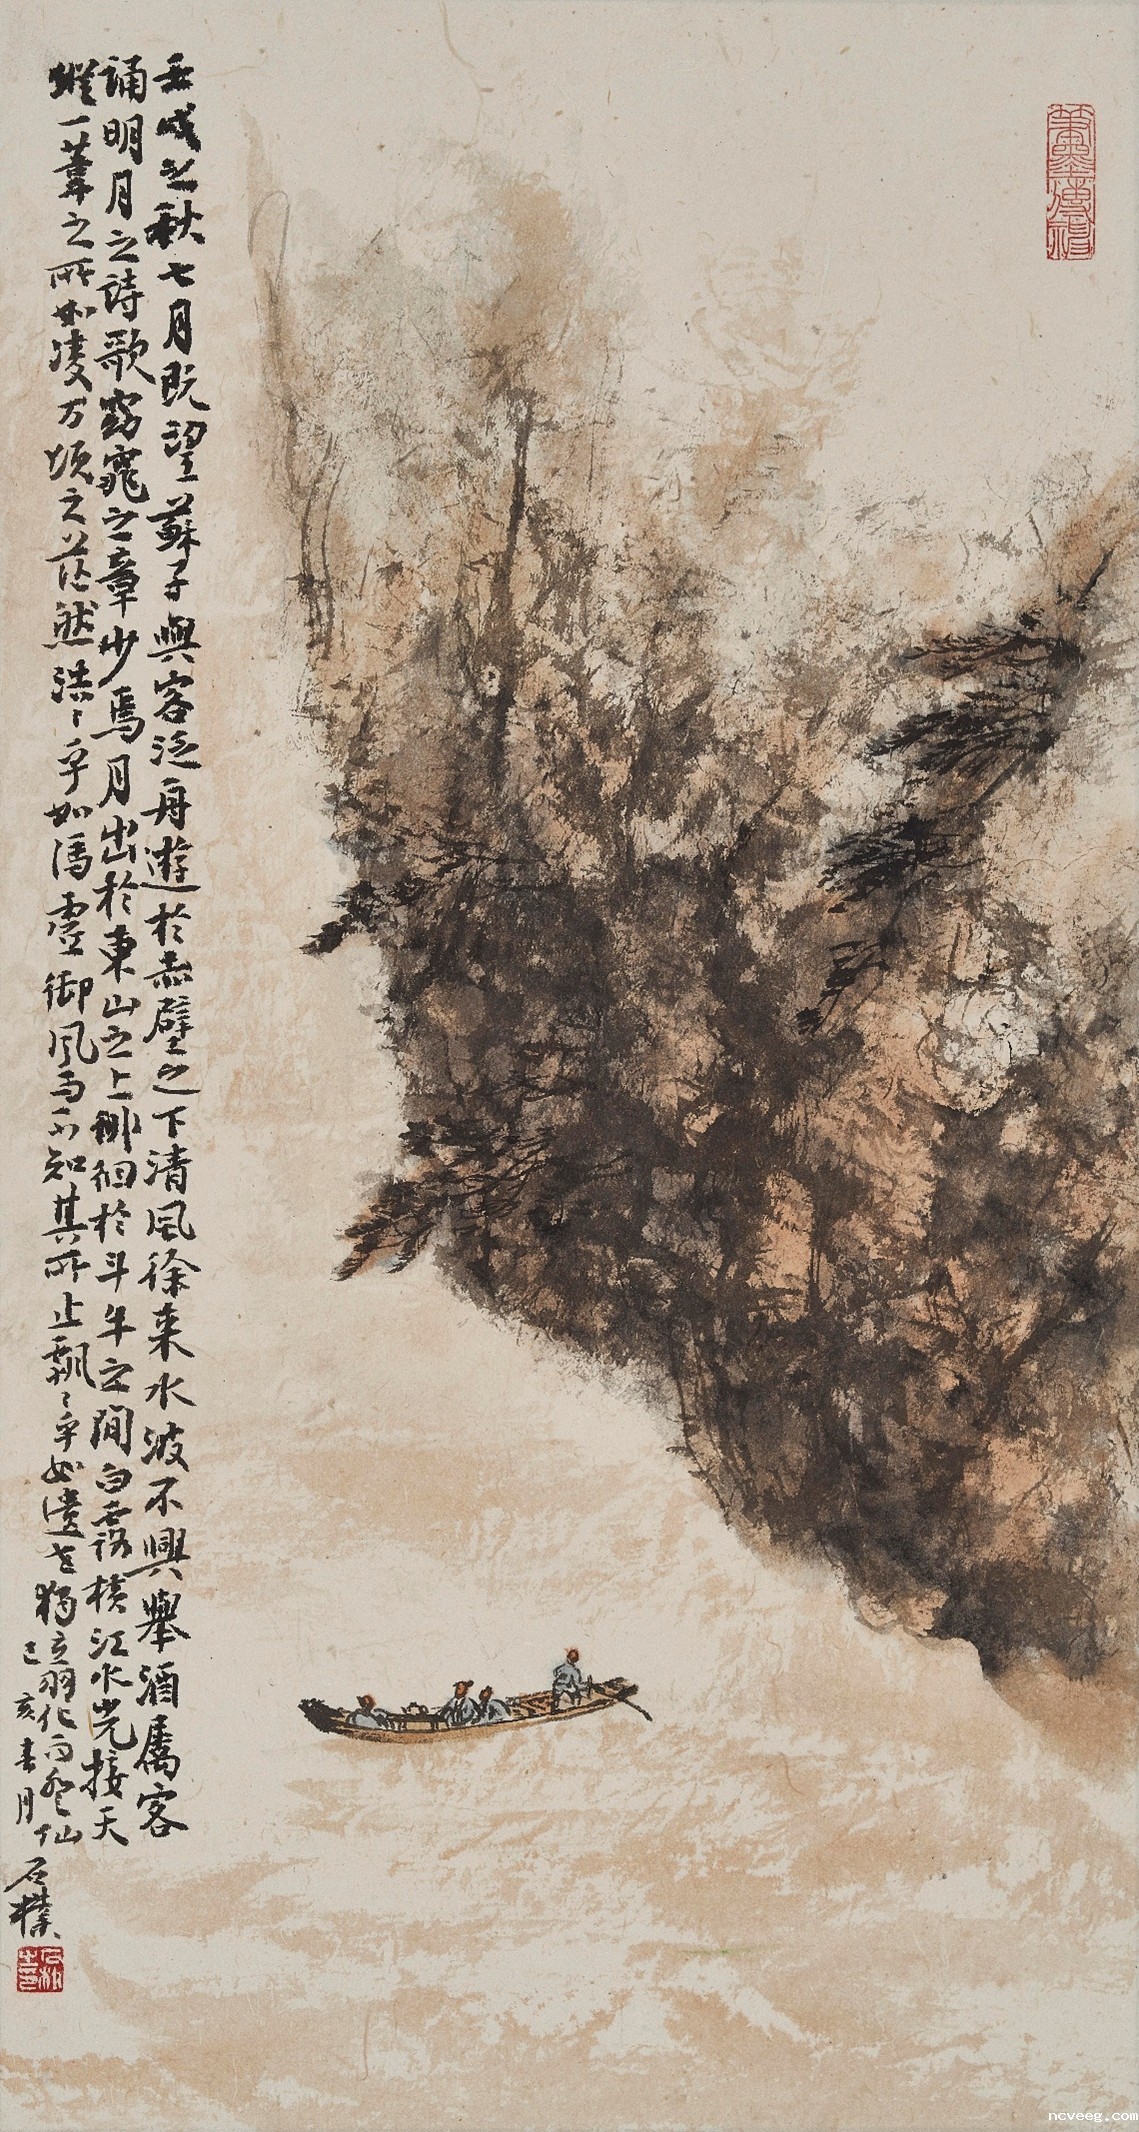 壬戌之秋七月既望蘇子與客泛舟遊於赤壁之下清風徐來水波不興舉酒屬客
誦明月之詩歌窈窕之章少焉月出於東山之上徘徊於斗牛之間白露橫江水光接天
縱一葦之所如凌万頃之茫然浩〻乎如馮虛御風而不知其所止飄〻乎如遺世獨立羽化而登仙
己亥春月
石樸
ncveeg.com